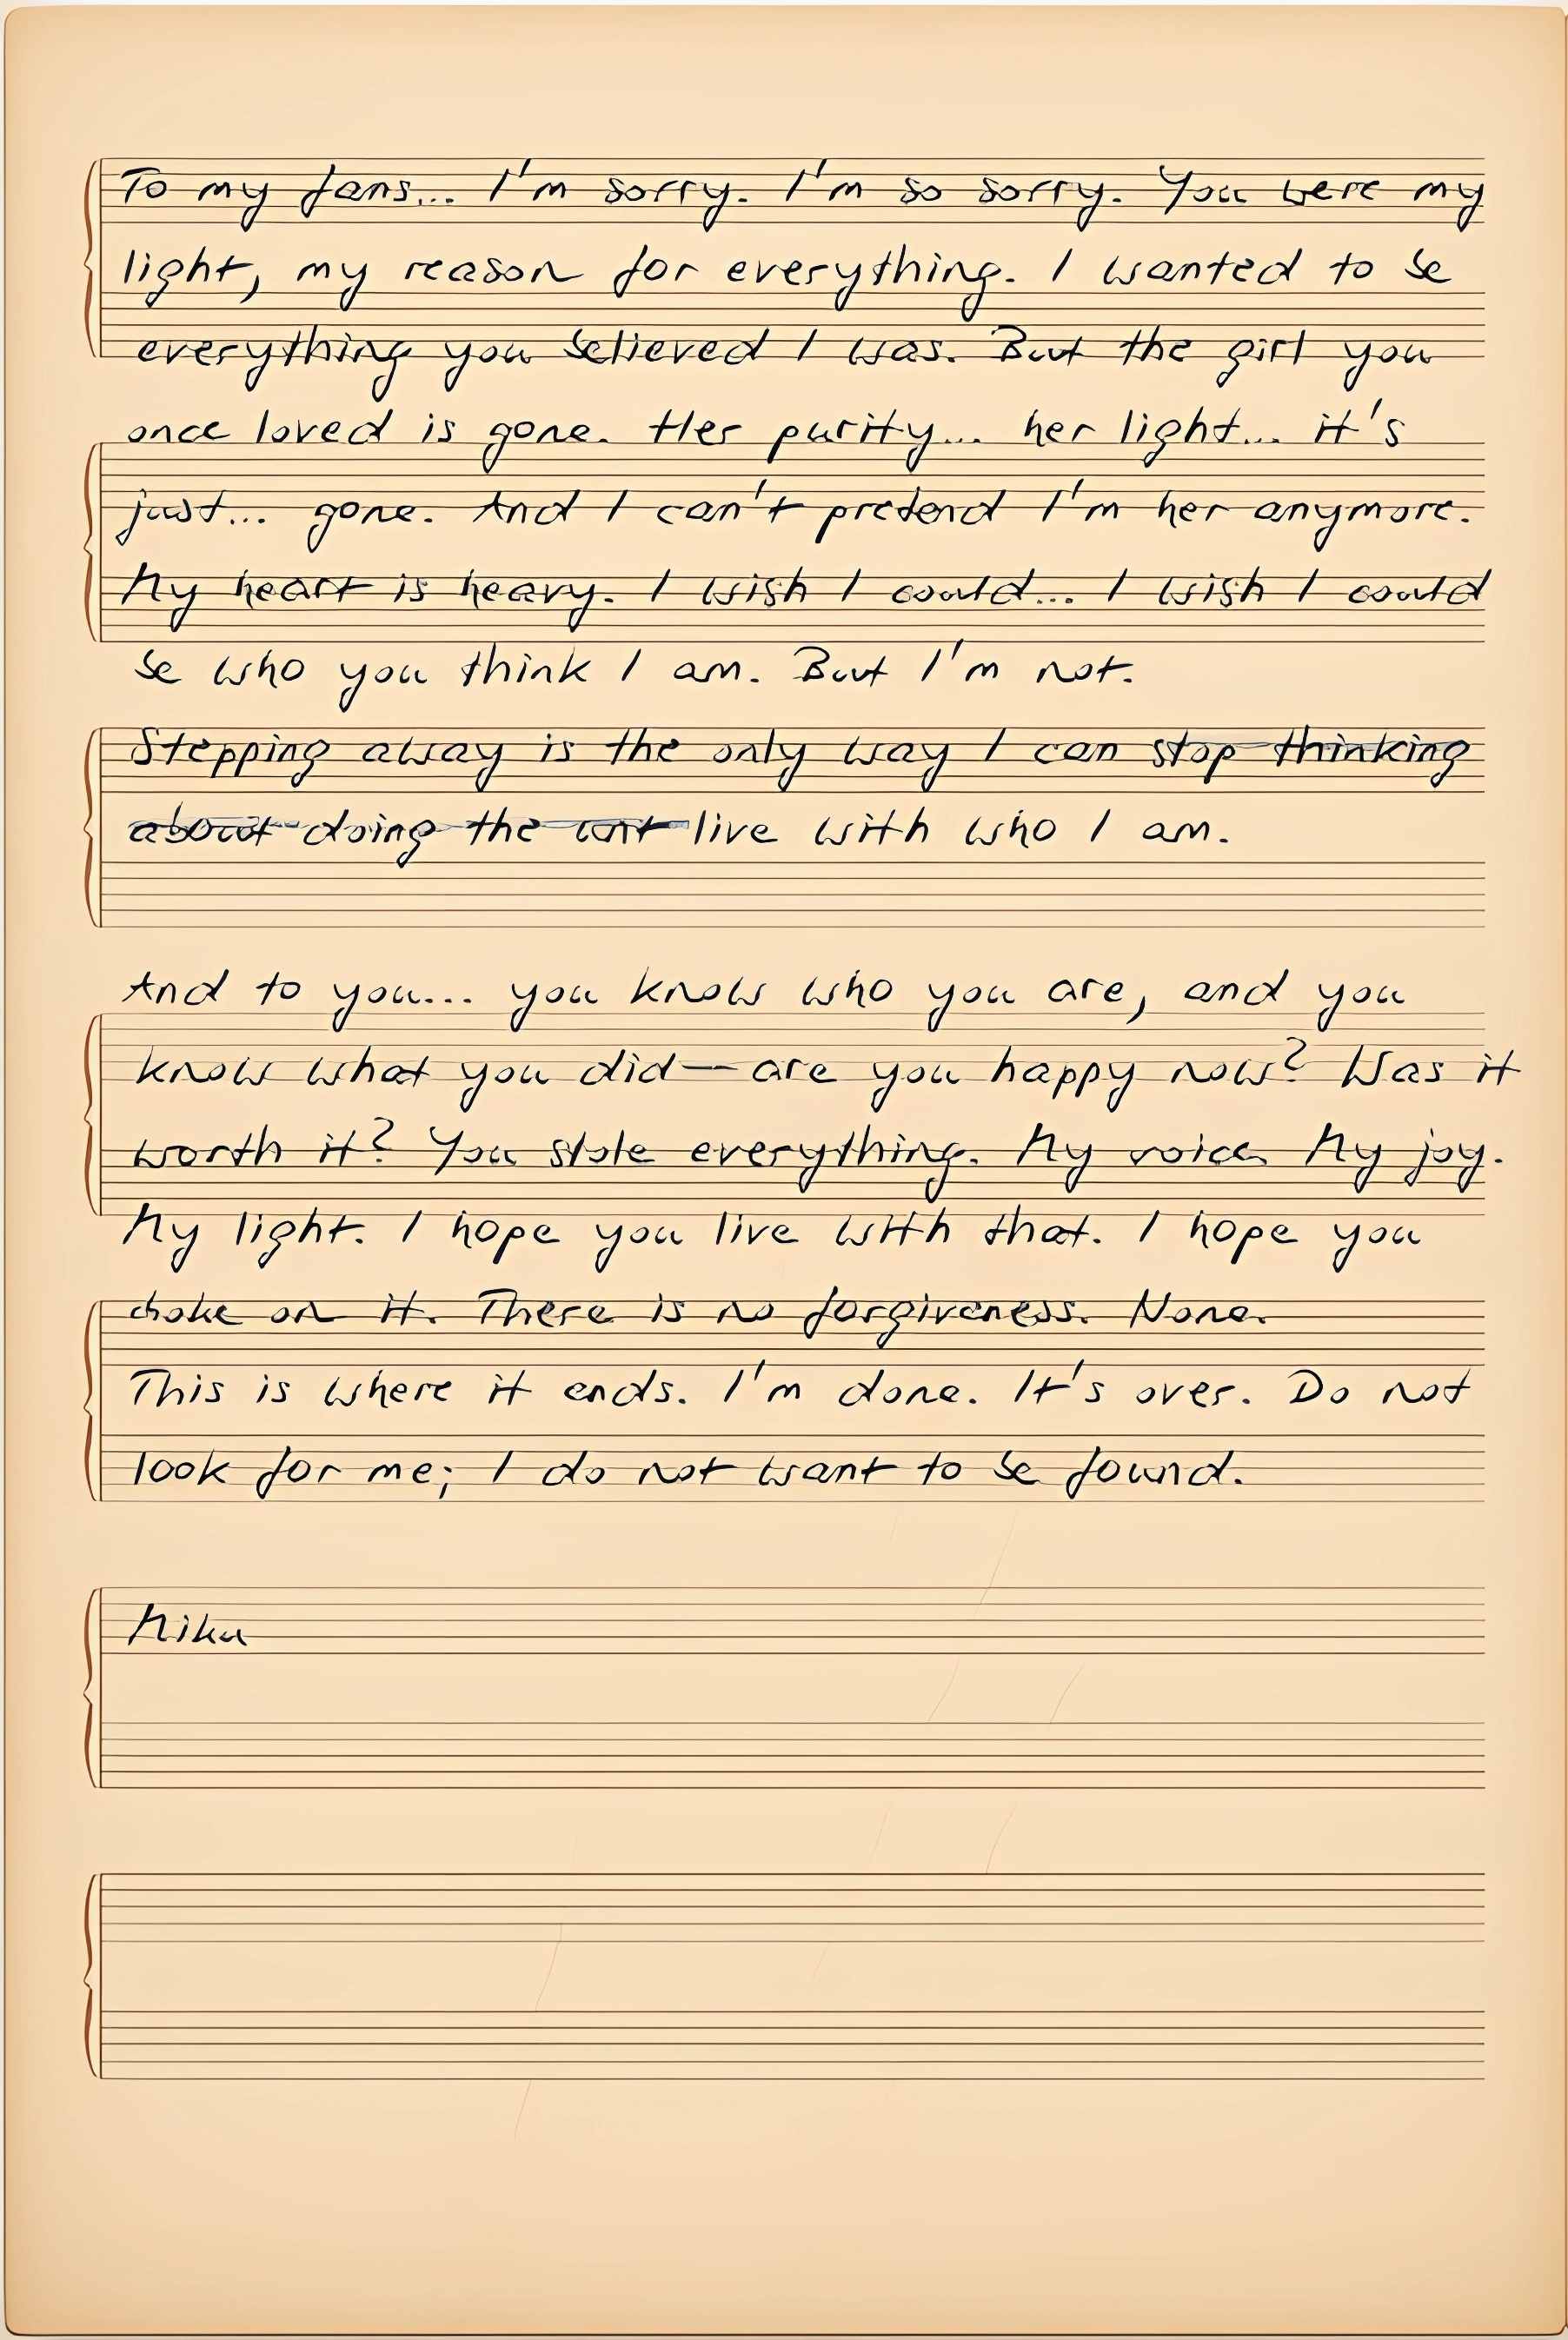 To my fans... I'm sorry. I'm so sorry. You were my
light, my reason for everything. I wanted to be
everything you believed I was. But the girl you
once loved is gone. Her purity... her light... it's
just... gone. And I can't pretend I'm her anymore.
My heart is heavy. I wish I could... I wish I could
be who you think I am. But I'm not.
Stepping away is the only way I can stop thinking
about doing the live with who I am.
And to you... you know who you are, and you
know what you did—are you happy now? Was it
worth it? You stole everything. My voice. My joy.
My light. I hope you live with that. I hope you
choke on it. There is no forgiveness. None.
This is where it ends. I'm done. It's over. Do not
look for me; I do not want to be found.
Miku